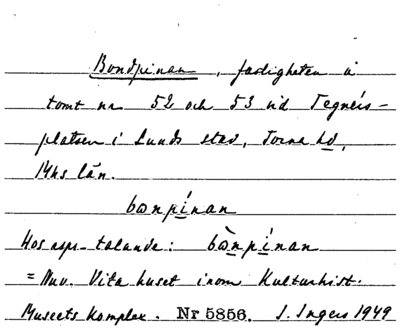 Bondpinan, fastigheten å
tomt nr 52 och 53 vid Tegnérs-
platsen i Lunds stad, Torna hd,
Mhs län.
bωnpínan
Hos rspr-talande: bὼnpínan
= Nuv. Vita huset inom Kulturhist.
Museets komplex. Nr 5856. I. Ingers 1949